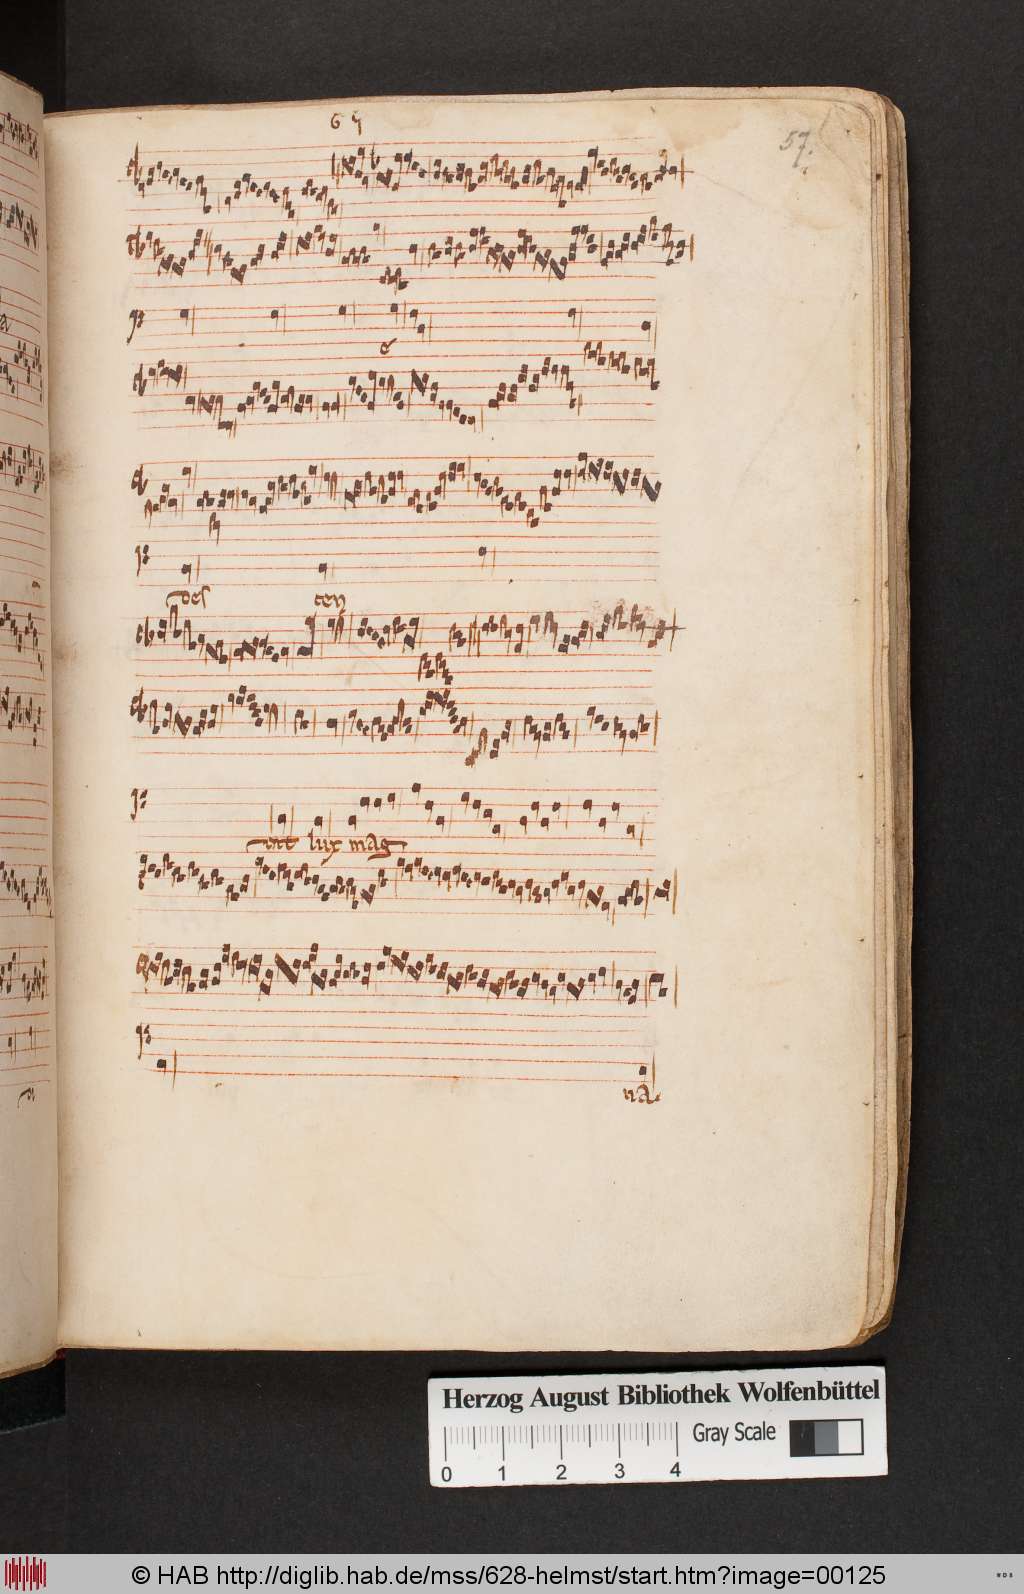 6 5
57.
e
des cen
dit lux mag
na.
Herzog August Bibliothek Wolfenbüttel
Gray Scale
0 1 2 3 4
© HAB http://diglib.hab.de/mss/628-helmst/start.htm?image=00125